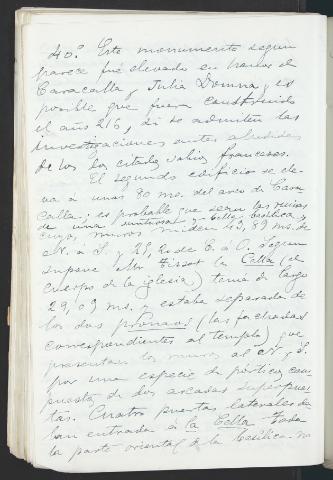 40º. Este monumento segun
parece fué elevado en honor de
Caracalla y Julia Domna y es
posible que fuera construido
el año 216, si se admiten las
investigaciones antes aludidas
de los
El segundo edificio se ele-
va á unas 80 ms. del arco de Cara-
calla; es probable que sean las ruinas
de una Basilica y
cuyos muros miden 43,89 ms. de
N. á S. y 21, 20 de E. á O. Segun
supone Mr Tissot la Cella (el
cuerpo de la iglesia) tenía de largo
29,09 ms. y estaba separada de
los dos pronaos (las fachadas
correspondientes al templo) que
presentan los muros al N. y S.
por una especie de pórtico com-
puesto de dos arcadas superpues-
tas. Cuatro puertas laterales da-
ban entrada á la Cella. Toda
la parte oriental de la Basilica no